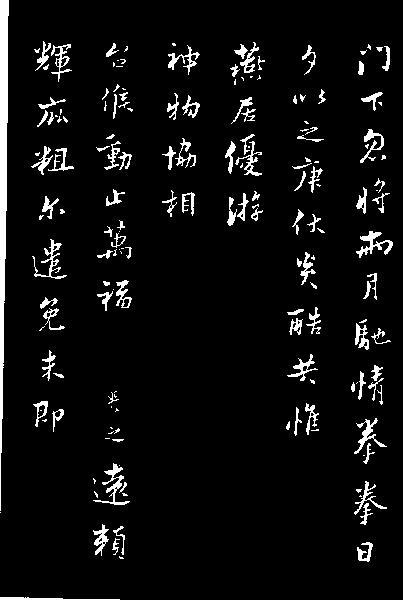 门下忽将兩月馳情拳拳日
夕以之庚伏炎酷共惟
燕居優游
神物協相
台候動止萬福 之遠賴
輝庇粗尔遣免未即